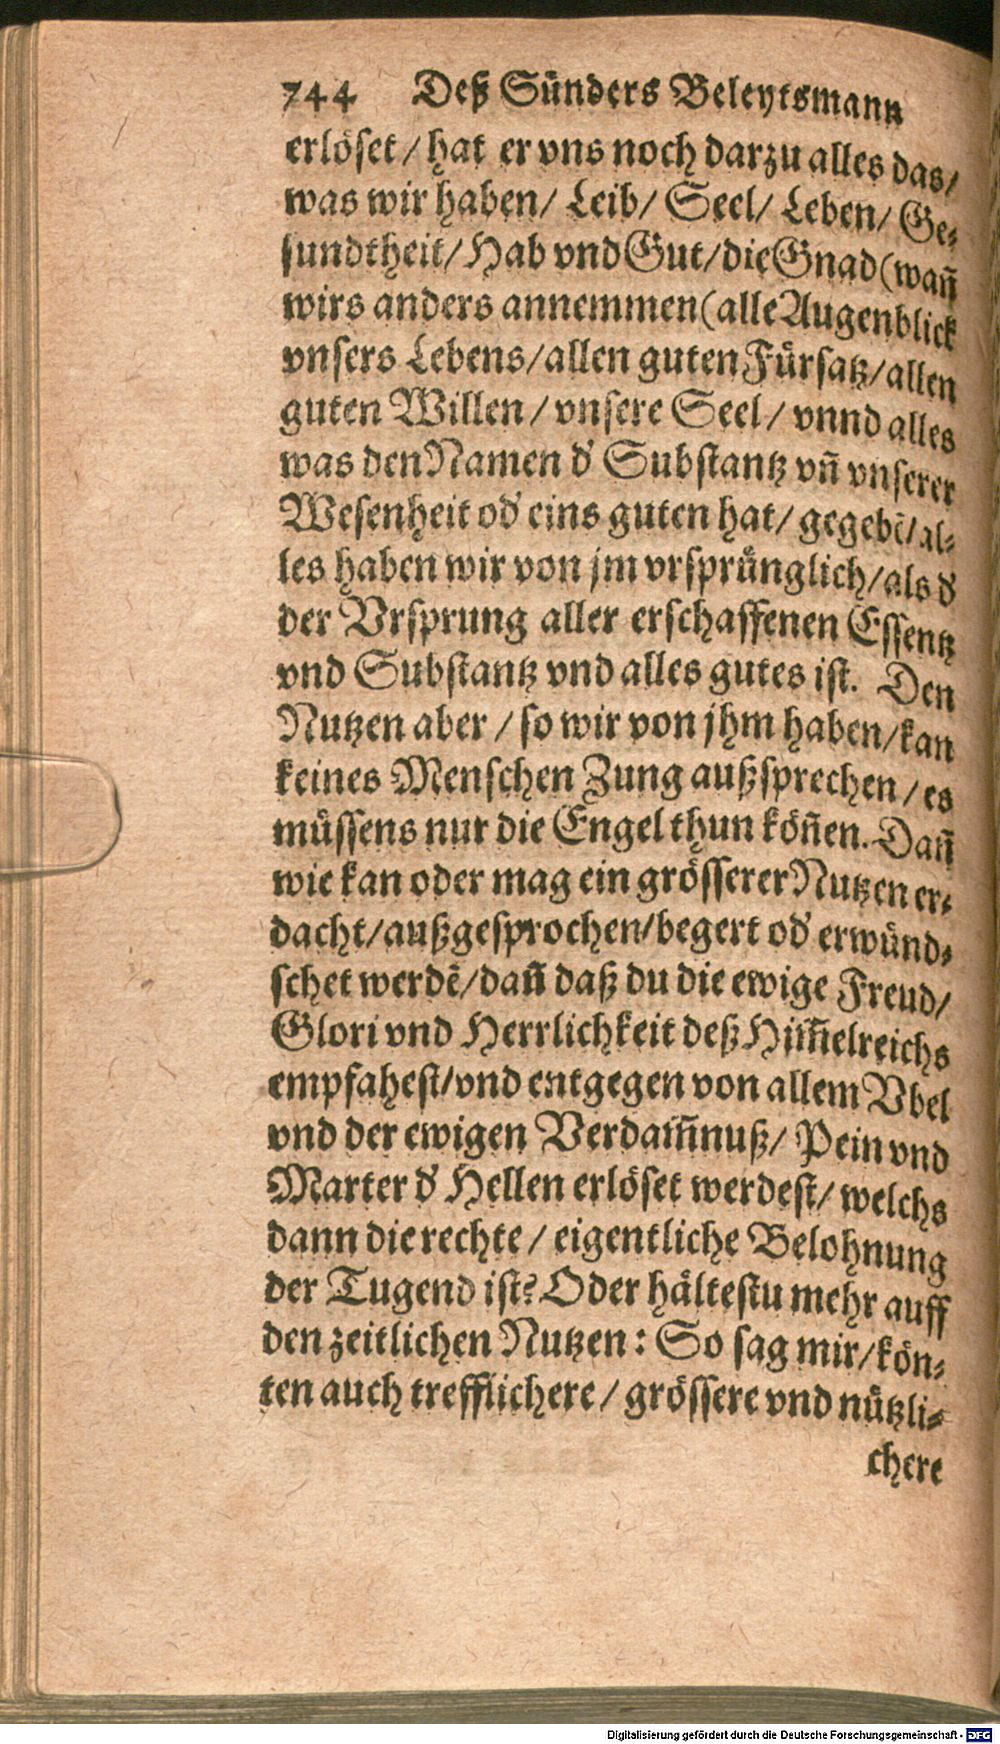 744 Deß Sünders Beleytsmann
erlöset / hat er vns noch darzu alles das /
was wir haben / Leib / Seel / Leben / Ge-
sundtheit / Hab vnd Gut / die Gnad (wañ
wirs anders annemmen (alle Augenblick
vnsers Lebens / allen guten Fürsatz / allen
guten Willen / vnsere Seel / vnnd alles
was den Namen d' Substantz vñ vnserer
Wesenheit od' eins guten hat / gegebē / al-
les haben wir von jm vrsprünglich / als d'
der Vrsprung aller erschaffenen Essentz
vnd Substantz vnd alles gutes ist. Den
Nutzen aber / so wir von jhm haben / kan
keines Menschen Zung außsprechen / es
müssens nur die Engel thun köñen. Dañ
wie kan oder mag ein grösserer Nutzen er-
dacht / außgesprochen / begert od' erwünd-
schet werdē / dañ daß du die ewige Freud /
Glori vnd Herrlichkeit deß Him̃elreichs
empfahest / vnd entgegen von allem Vbel
vnd der ewigen Verdam̃nuß / Pein vnd
Marter d' Hellen erlöset werdest / welchs
dann die rechte / eigentliche Belohnung
der Tugend ist? Oder hältestu mehr auff
den zeitlichen Nutzen: So sag mir / kön-
ten auch trefflichere / grössere vnd nützli-
chere
Digitalisierung gefördert durch die Deutsche Forschungsgemeinschaft - DFG